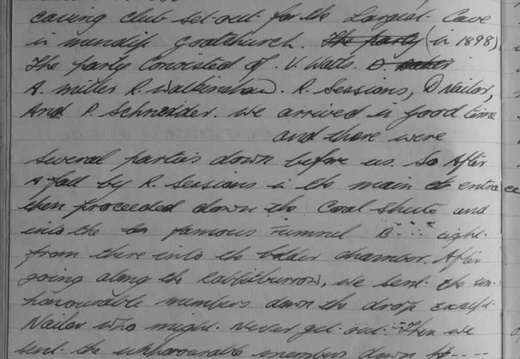 caving club set out for the Largest Cave
in mendip Goatchurch. The party (in 1898)
The party Consisted of V. Watts.
A. miller R. Walkinshaw. R. Sessions, D Nailor,
And P. Schneider. we arrived in good time
and there were
several parties down before us. So After
a fall by R. Sessions in the main entrance
then proceeded down the Coal Shute and
into the famous Funnel
from there into the bolder chamber. After
going along the rabbitburrow, we sent the un-
honourable members down the drop except
Nailor who might never get out. Then we
sent the unhonourable members down